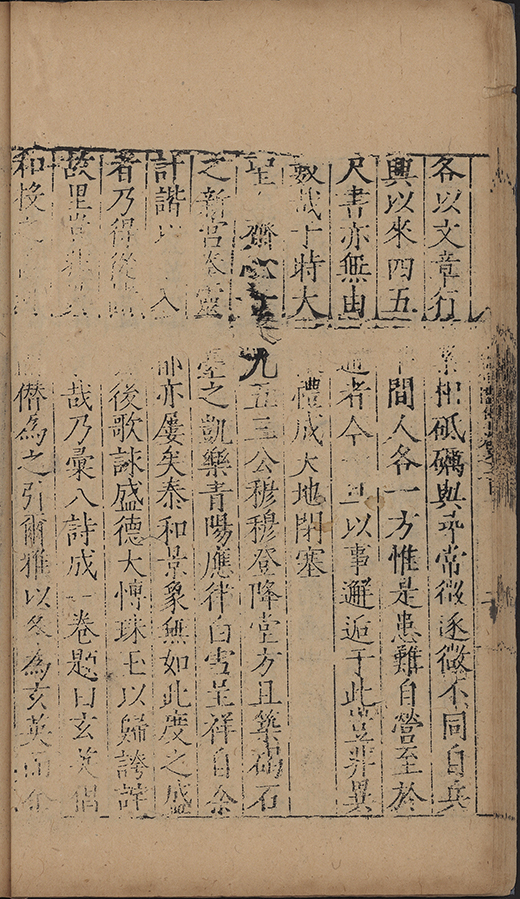 各以文章行業相砥礪與尋常徵逐微不同自兵
興以來四五年間人各一方惟是患難自營至於
尺書亦無由通者今一旦以事邂逅于此豈非異
數哉丁特大禮成大地閉塞
聖齋九五三公穆穆登降堂方且築碣石
之新宮奉靈臺之凱樂青陽應律白雪呈祥自余
計諧以入亦屢矣泰和景象無如此度之盛
者乃得從後歌詠盛德大慱珠玉以歸誇詳
故里豈非哉乃彙八詩成一卷題曰玄英倡
和授之僭為之引爾雅以冬為玄英而余